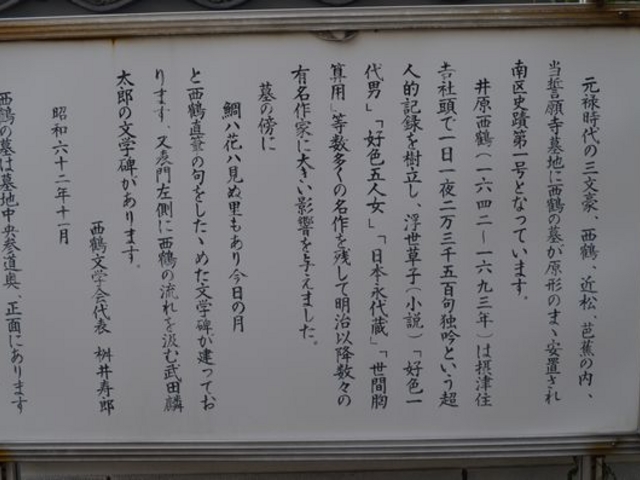 元禄時代の三文豪、西鶴、近松、芭蕉の内、
当誓願寺墓地に西鶴の墓が原形のまゝ安置され
南区史蹟第一号となっています。
井原西鶴(一六四二〜一六九三年)は摂津住
吉社頭で一日一夜二万三千五百句独吟という超
人的記録を樹立し、浮世草子(小説)「好色一
代男」「好色五人女」「日本永代蔵」「世間胸
算用」等数多くの名作を残して明治以降数々の
有名作家に大きい影響を与えました。
墓の傍に
鯛ハ花ハ見ぬ里もあり今日の月
と西鶴直筆の句をしたゝめた文学碑が建ってお
ります、又表門左側に西鶴の流れを汲む武田麟
太郎の文学碑があります。
西鶴文学会代表 桝井寿郎
昭和六十二年十一月
西鶴の墓は墓地中央参道奥、正面にあります